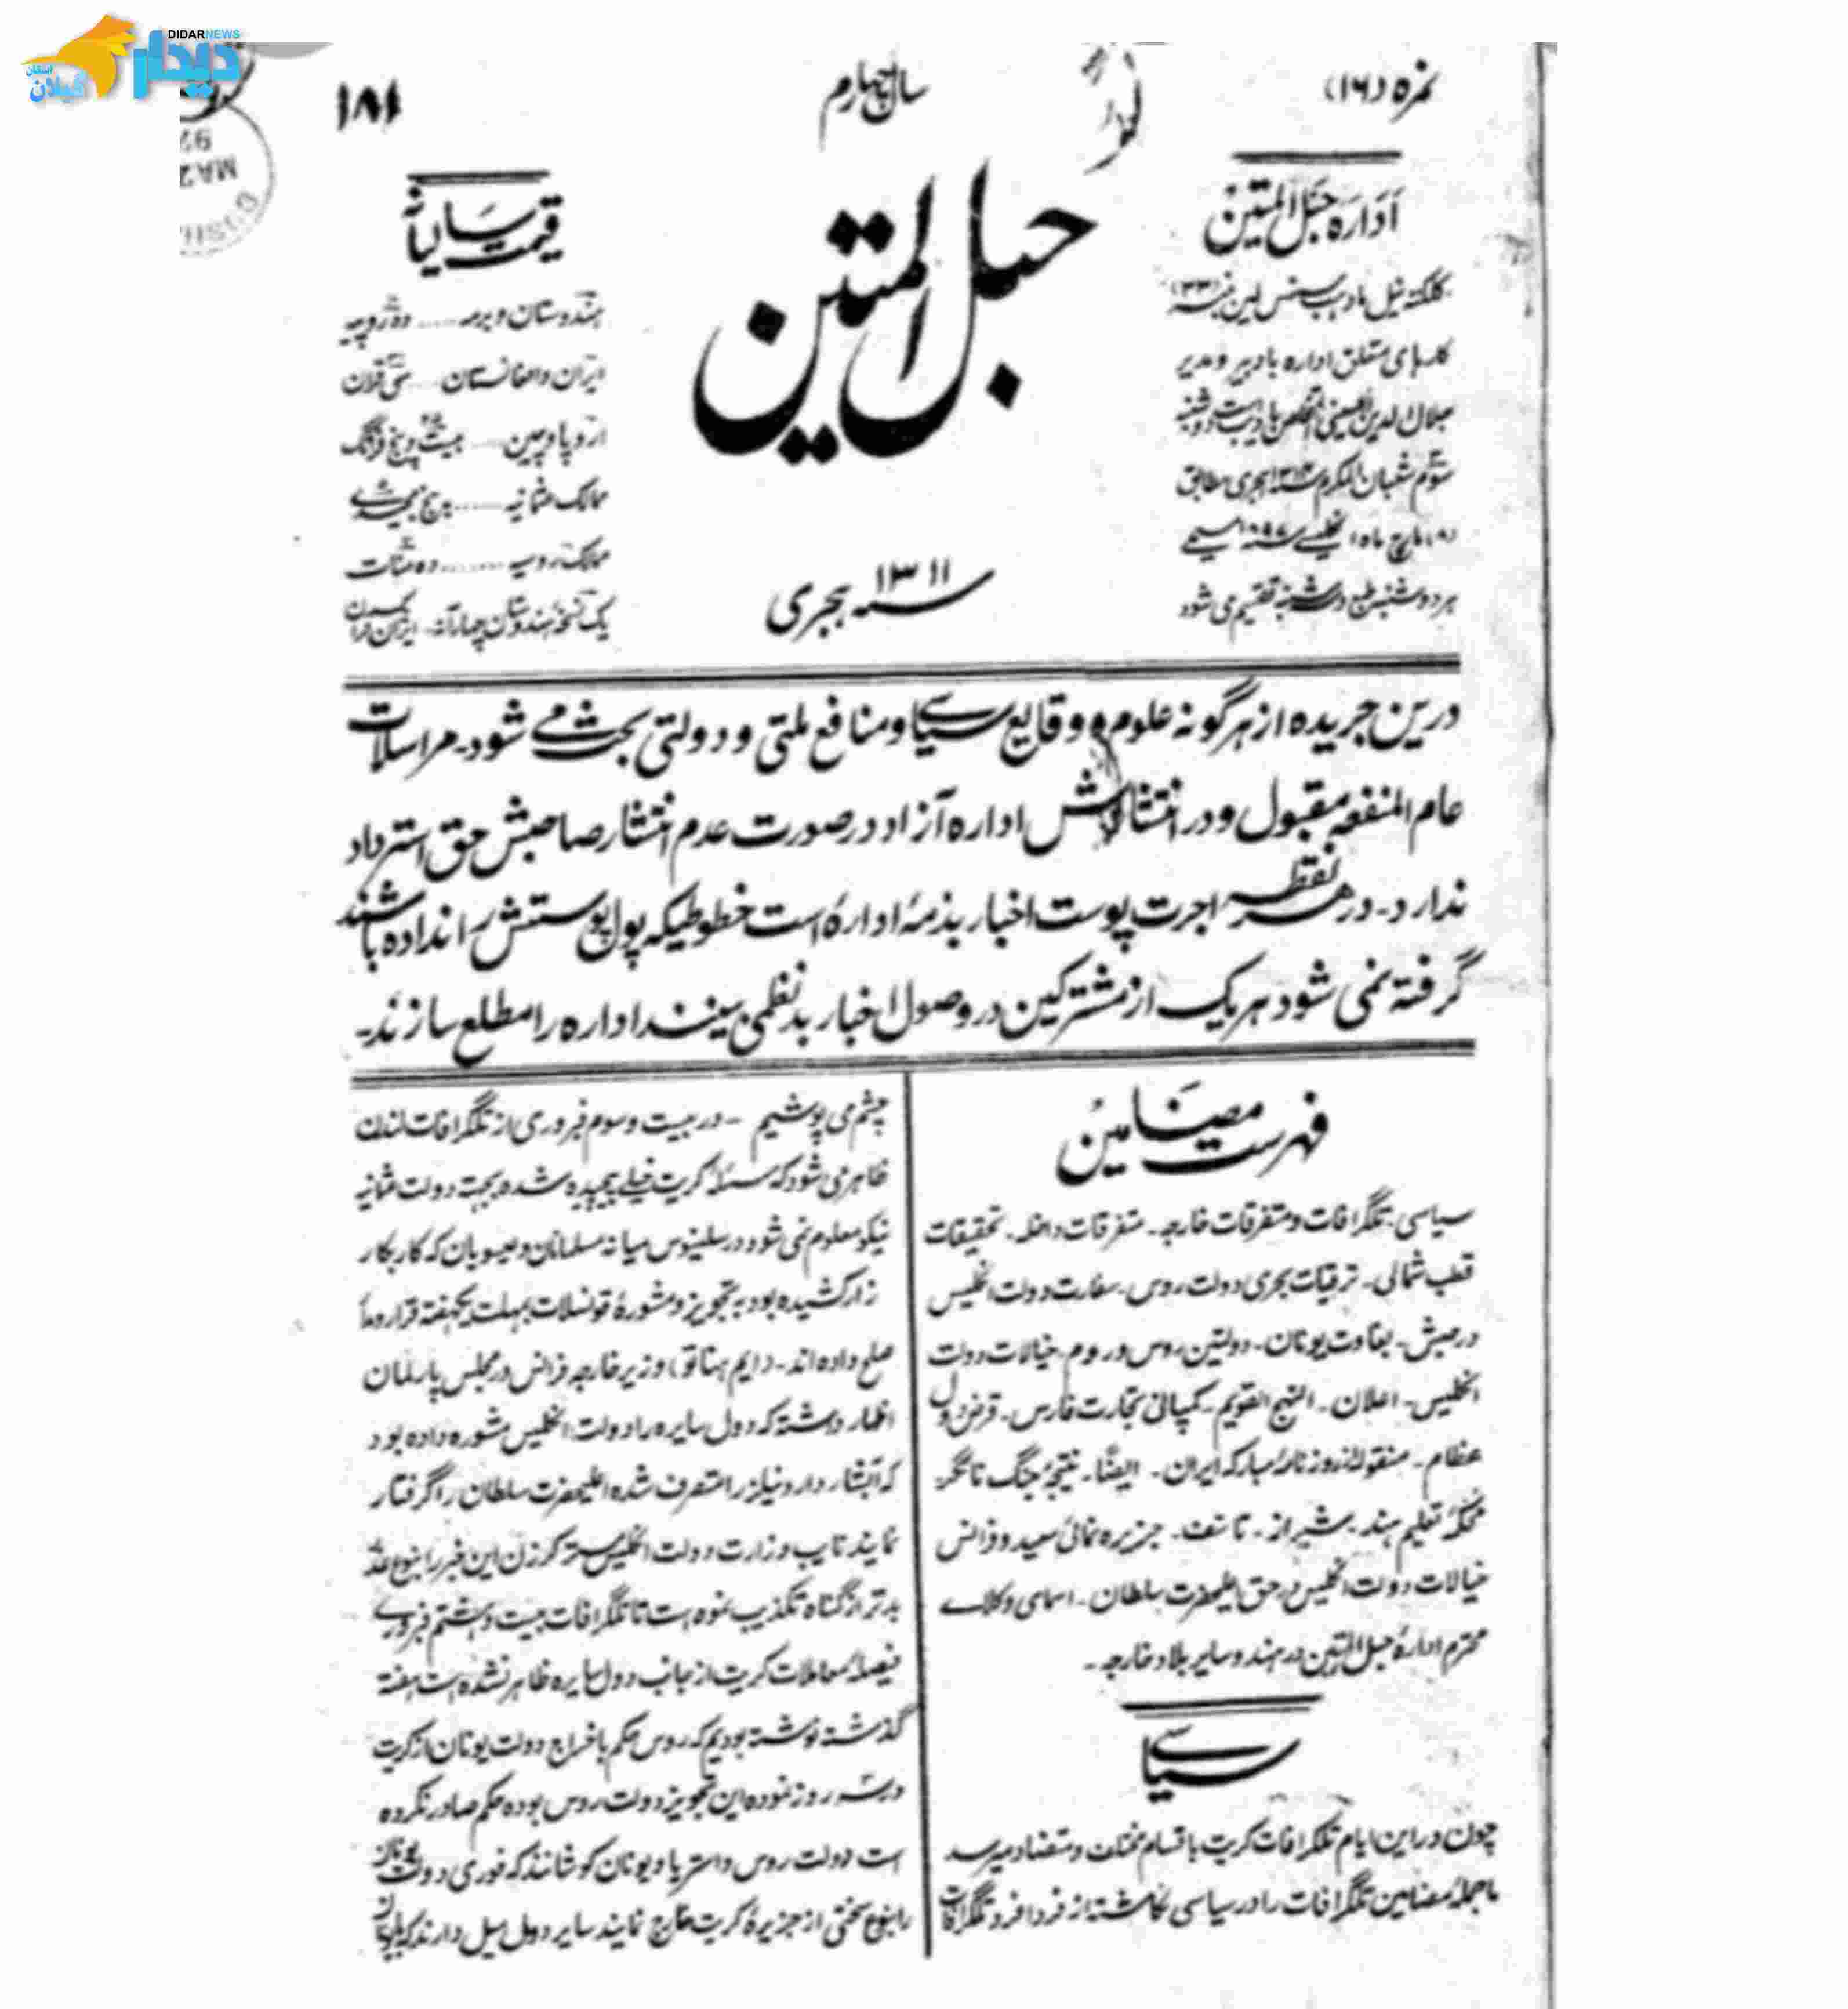 DIDARNEWS
دیدار
استان
گیلان
نمره (۱۶)
سال چهارم
۱۸۱
اداره حبل المتین
کلکته
کارهای متعلق اداره با دبیر و مدیر
جلال الدین الحسینی
شعبان المکرم هجری مطابق
ماه انگلیسی
هر دوشنبه طبع و سه شنبه تقسیم می شود
حبل المتین
سنه ۱۳۱۱ هجری
قیمت سالیانه
هندوستان و برمه ..... ده روپیه
ایران و افغانستان ... سی قران
اروپا و چین .... بیست و پنج فرانک
ممالک عثمانیه ..... پنج مجیدی
ممالک روسیه ....... ده منات
یک نسخه هندوستان چهار آنه - ایران
درین جریده از هرگونه علوم و وقایع سیاسی و منافع ملتی و دولتی بحث می شود - مراسلات
عام المنفعه مقبول و در انتشارش اداره آزاد در صورت عدم انتشار صاحبش حق استرداد
ندارد - در هر نقطه اجرت پوست اخبار بذمهٔ ادارهٔ است خطوطیکه پول پوستش را نداده باشند
گرفته نمی شود هر یک از مشترکین در وصول اخبار بدنظمی بینند اداره را مطلع سازند -
فهرست مضامین
سیاسی - تلگرافات و متفرقات خارجه - متفرقات داخله - تحقیقات
قطب شمالی - ترقیات بحری دولت روس - سفارت دولت انگلیس
در حبش - بغاوت یونان - دولتین روس و روم - خیالات دولت
انگلیس - اعلان - النهج القویم - کمپانی تجارت فارس - قرض دول
عظام - منقوله از روزنامهٔ مبارکه ایران - ایضاً - نتیجهٔ جنگ
محکمهٔ تعلیم هند - شیراز - تاسف - جزیره نمائی سعید و فرانس
خیالات دولت انگلیس در حق اعلیحضرت سلطان - اسامی وکلاے
محترم ادارهٔ حبل المتین در هند و سایر بلاد خارجه -
سیاسی
چون در این ایام تلگرافات کریت باقسام مختلف و متضاد میرسد
ما جملهٔ مضامین تلگرافات را در سیاسی نگاشته از فرداً فرد تلگرافات
چشم می پوشیم - در بیست و سوم فروری از تلگرافات لندن
ظاهر می شود که مسئلهٔ کریت خیلی پیچیده شده بجهت دولت عثمانیه
نیکو معلوم نمی شود در سلینوس میانه مسلمانان و عیسویان که کار بکار
زار کشیده بود به تجویز و مشورهٔ قونسلات بمهلت یکهفته قرار
صلح داده اند - (ایم هناتو) وزیر خارجه فرانس در مجلس پارلمان
اظهار داشته که دول سایره را دولت انگلیس مشوره داده بود
که آبشار دارونیلز را متصرف شده اعلیحضرت سلطان را گرفتار
نمایند نایب وزارت دولت انگلیس مستر کرزن این خبر را بنوع عذر
بدتر از گناه تکذیب نموده است تا تلگرافات بیست و هشتم فروری
فیصلهٔ معاملات کریت از جانب دول سایره ظاهر نشده است هفته
گذشته نوشته بودیم که روس حکم باخراج دولت یونان از کریت
در سه روز نموده این تجویز دولت روس بوده حکم صادر نکرده
است دولت روس و استریا و یونان کوشانند که فوری دولت یونان
را بنوع سختی از جزیرهٔ کریت خارج نمایند سایر دول میل دارند که